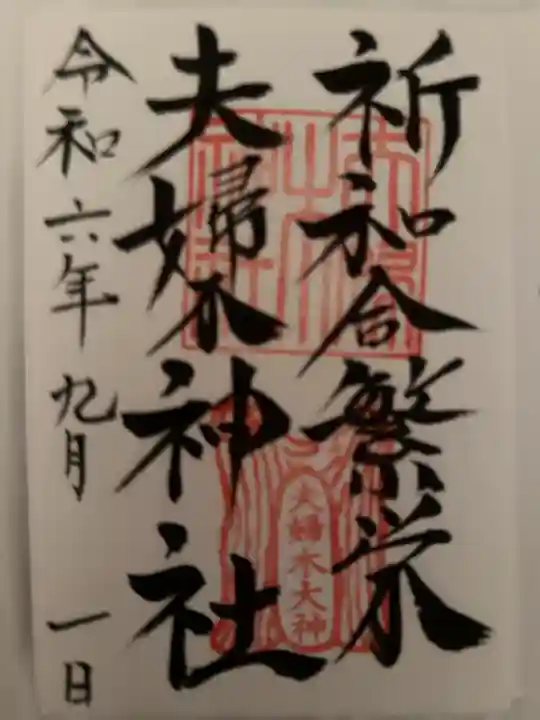 祈和合繁栄
夫婦木神社
令和六年九月一日
夫婦木神社
夫婦木大神